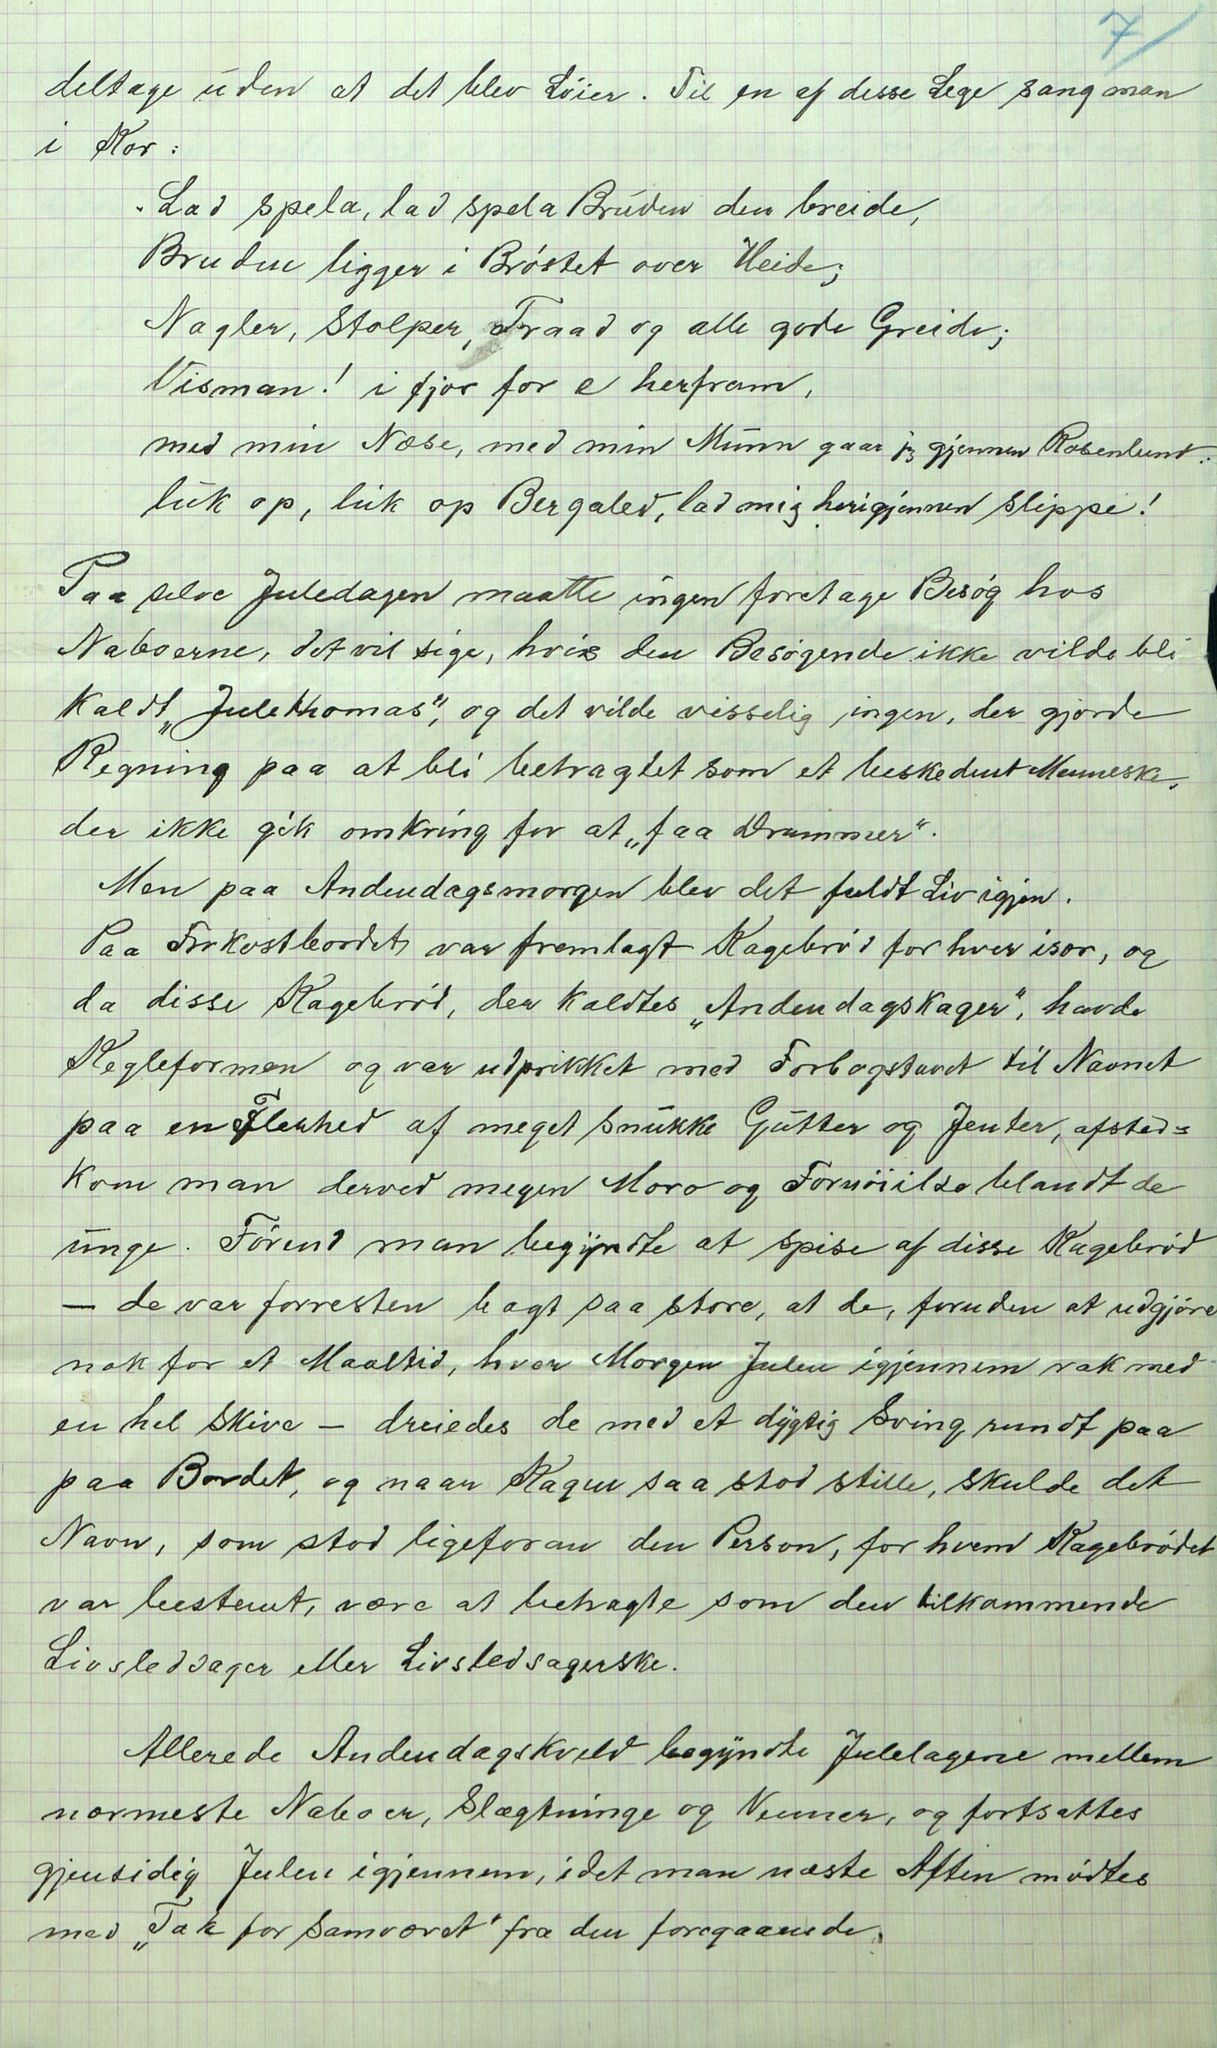 7/
deltage uden at det blev Löier. Til en af disse Lege sang man
i Kor:
„Lad spela, lad spela Bruden den breide,
Bruden ligger i Bröstet over Heide;
Nagler, Stolper, Traad og alle gode Greide;
Visman! i fjor for e herfram,
med min Næse, med min Munn gaar jeg gjennem Rosenlund:
luk op, luk op Bergaled, lad mig herigjennem slippe!
Paa selve Juledagen maatte ingen foretage Besøg hos
Naboerne, det vil sige, hvis den Besøgende ikke vilde bli
kaldt „Julethomas“, og det vilde visselig ingen, der gjorde
Regning paa at bli betragtet som et beskedent Menneske,
der ikke gik omkring for at „faa Drammer“.
Men paa Andendagsmorgen blev det fuldt Liv igjen.
Paa Frokostbordet var fremlagt Kagebrød for hver især, og
da disse Kagebrød, der kaldtes „Andendagskager“, havde
Kegleformen og var udprikket med Forbogstavet til Navnet
paa en Flerhed af meget snukke Gutter og Jenter, afsted=
kom man derved megen Moro og Fornöielse blandt de
unge. Förend man begyndte at spise af disse Kagebrød
— de var forresten bagt saa store, at de, foruden at udgjöre
nok for et Maaltid, hver Morgen Julen igjennem rak med
en hel Skive — dreiedes de med et dygtig Sving rundt paa
paa Bordet, og naar Kagen saa stod stille, skulde det
Navn, som stod ligeforan den Person, for hvem Kagebrødet
var bestemt, være at betragte som den tilkommende
Livsledsager eller Livsledsagerske.
Allerede Andendagskveld begyndte Julelagene mellem
nærmeste Naboer, Slægtninge og Venner, og fortsattes
gjensidig Julen igjennem, idet man næste Aften mødtes
med „Tak for Samværet“ fra den foregaaende.